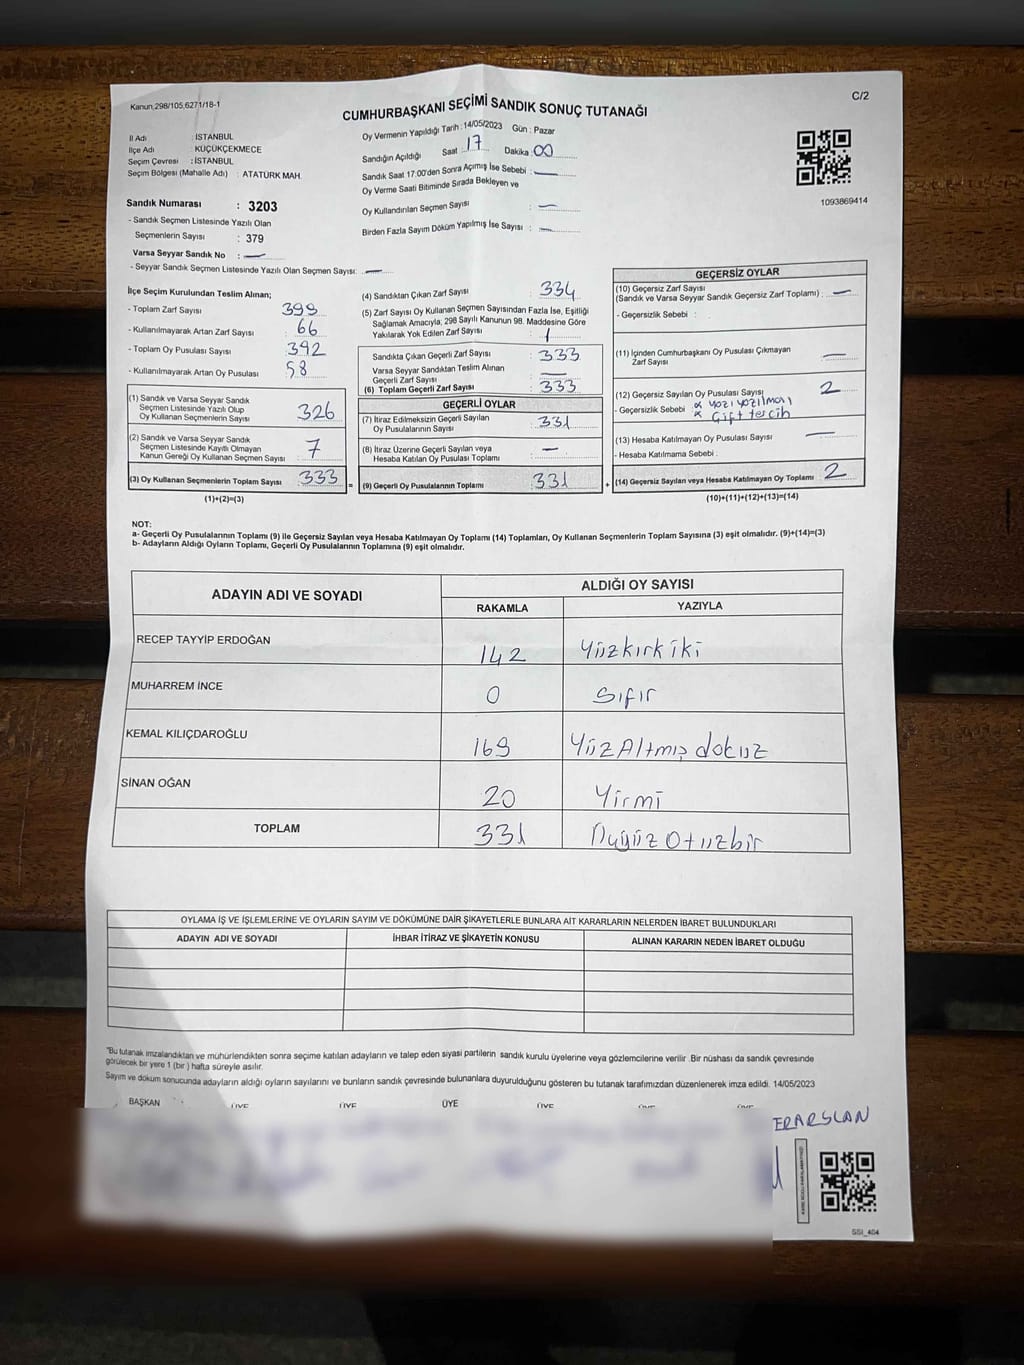 Kanun,298/105,6271/18-1
C/2
CUMHURBAŞKANI SEÇİMİ SANDIK SONUÇ TUTANAĞI
İl Adı : İSTANBUL
İlçe Adı : KÜÇÜKÇEKMECE
Seçim Çevresi : İSTANBUL
Seçim Bölgesi (Mahalle Adı) : ATATÜRK MAH.
Oy Vermenin Yapıldığı Tarih : 14/05/2023 Gün : Pazar
Sandığın Açıldığı Saat 17 Dakika : 00
Sandık Saat 17:00'den Sonra Açımış İse Sebebi : —
Oy Verme Saati Bitiminde Sırada Bekleyen ve
Oy Kullandırılan Seçmen Sayısı : —
Birden Fazla Sayım Döküm Yapılmış İse Sayısı : —
1093869414
Sandık Numarası : 3203
- Sandık Seçmen Listesinde Yazılı Olan
Seçmenlerin Sayısı : 379
Varsa Seyyar Sandık No : —
- Seyyar Sandık Seçmen Listesinde Yazılı Olan Seçmen Sayısı: —
İlçe Seçim Kurulundan Teslim Alınan;
- Toplam Zarf Sayısı : 399
- Kullanılmayarak Artan Zarf Sayısı : 66
- Toplam Oy Pusulası Sayısı : 392
- Kullanılmayarak Artan Oy Pusulası : 58
(1) Sandık ve Varsa Seyyar Sandık
Seçmen Listesinde Yazılı Olup
Oy Kullanan Seçmenlerin Sayısı : 326
(2) Sandık ve Varsa Seyyar Sandık
Seçmen Listesinde Kayıtlı Olmayan
Kanun Gereği Oy Kullanan Seçmen Sayısı : 7
(3) Oy Kullanan Seçmenlerin Toplam Sayısı : 333
(1)+(2)=(3)
(4) Sandıktan Çıkan Zarf Sayısı : 334
(5) Zarf Sayısı Oy Kullanan Seçmen Sayısından Fazla İse, Eşitliği
Sağlamak Amacıyla; 298 Sayılı Kanunun 98. Maddesine Göre
Yakılarak Yok Edilen Zarf Sayısı : 1
Sandıkta Çıkan Geçerli Zarf Sayısı : 333
Varsa Seyyar Sandıktan Teslim Alınan
Geçerli Zarf Sayısı : —
(6) Toplam Geçerli Zarf Sayısı : 333
GEÇERLİ OYLAR
(7) İtiraz Edilmeksizin Geçerli Sayılan
Oy Pusulalarının Sayısı : 331
(8) İtiraz Üzerine Geçerli Sayılan veya
Hesaba Katılan Oy Pusulası Toplamı : —
= (9) Geçerli Oy Pusulalarının Toplamı : 331
GEÇERSİZ OYLAR
(10) Geçersiz Zarf Sayısı
(Sandık ve Varsa Seyyar Sandık Geçersiz Zarf Toplamı) : —
- Geçersizlik Sebebi :
(11) İçinden Cumhurbaşkanı Oy Pusulası Çıkmayan
Zarf Sayısı : —
(12) Geçersiz Sayılan Oy Pusulası Sayısı : 2
- Geçersizlik Sebebi yazı yazılması
Çift tercih
(13) Hesaba Katılmayan Oy Pusulası Sayısı : —
- Hesaba Katılmama Sebebi :
+ (14) Geçersiz Sayılan veya Hesaba Katılmayan Oy Toplamı : 2
(10)+(11)+(12)+(13)=(14)
NOT:
a- Geçerli Oy Pusulalarının Toplamı (9) ile Geçersiz Sayılan veya Hesaba Katılmayan Oy Toplamı (14) Toplamları, Oy Kullanan Seçmenlerin Toplam Sayısına (3) eşit olmalıdır. (9)+(14)=(3)
b- Adayların Aldığı Oyların Toplamı, Geçerli Oy Pusulalarının Toplamına (9) eşit olmalıdır.
ADAYIN ADI VE SOYADI ALDIĞI OY SAYISI
RAKAMLA YAZIYLA
RECEP TAYYİP ERDOĞAN 142 Yüzkırk iki
MUHARREM İNCE 0 Sıfır
KEMAL KILIÇDAROĞLU 169 Yüz Altmış dokuz
SİNAN OĞAN 20 Yirmi
TOPLAM 331 Üçyüz Otuzbir
OYLAMA İŞ VE İŞLEMLERİNE VE OYLARIN SAYIM VE DÖKÜMÜNE DAİR ŞİKAYETLERLE BUNLARA AİT KARARLARIN NELERDEN İBARET BULUNDUKLARI
ADAYIN ADI VE SOYADI İHBAR İTİRAZ VE ŞİKAYETİN KONUSU ALINAN KARARIN NEDEN İBARET OLDUĞU
"Bu tutanak imzalandıktan ve mühürlendikten sonra seçime katılan adayların ve talep eden siyasi partilerin sandık kurulu üyelerine veya gözlemcilerine verilir .Bir nüshası da sandık çevresinde
görülecek bir yere 1 (bir ) hafta süreyle asılır.
Sayım ve döküm sonucunda adayların aldığı oyların sayılarını ve bunların sandık çevresinde bulunanlara duyurulduğunu gösteren bu tutanak tarafımızdan düzenlenerek imza edildi. 14/05/2023
BAŞKAN ÜYE ÜYE ÜYE ÜYE ÜYE ÜYE
ERARSLAN
SSI_404